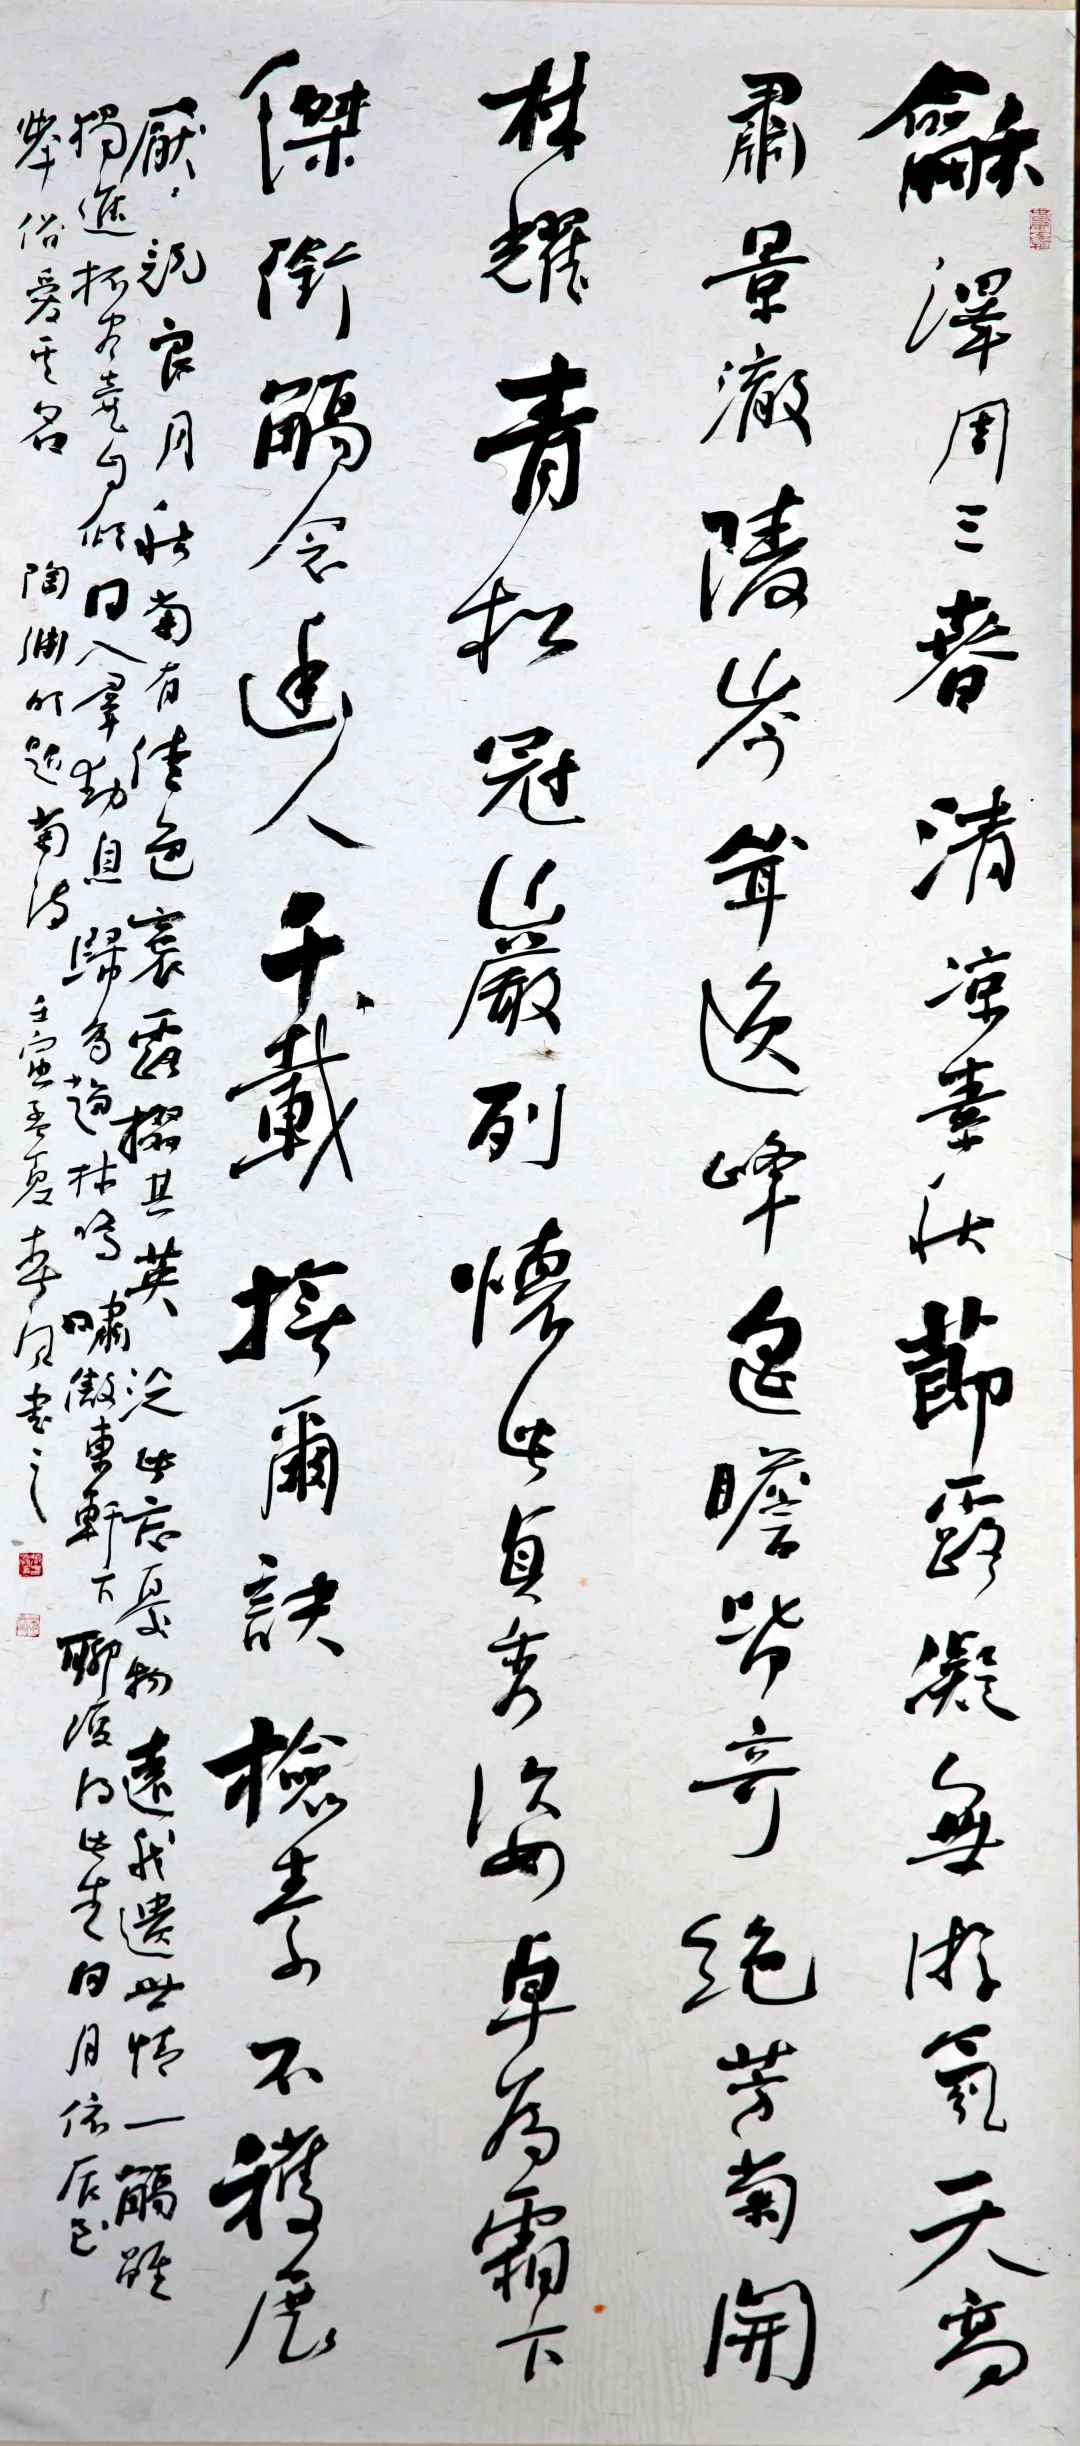 龢澤周三春清涼素秋節露凝無游氛天高
肅景澈陵岑聳逸峰遙瞻皆奇絕芳菊開
林耀青松冠巖列懷此貞秀姿卓為霜下
傑銜觴念幽人千載撫爾訣檢素不獲展
厭厭竟良月秋菊有佳色裛露掇其英汎此忘憂物遠我遺世情一觴雖
獨進杯盡壺自傾日入羣動息歸鳥趨林鳴嘯傲東軒下聊復得此生日月依辰至
舉俗愛其名 陶淵明題菊詩 壬寅孟夏春書之